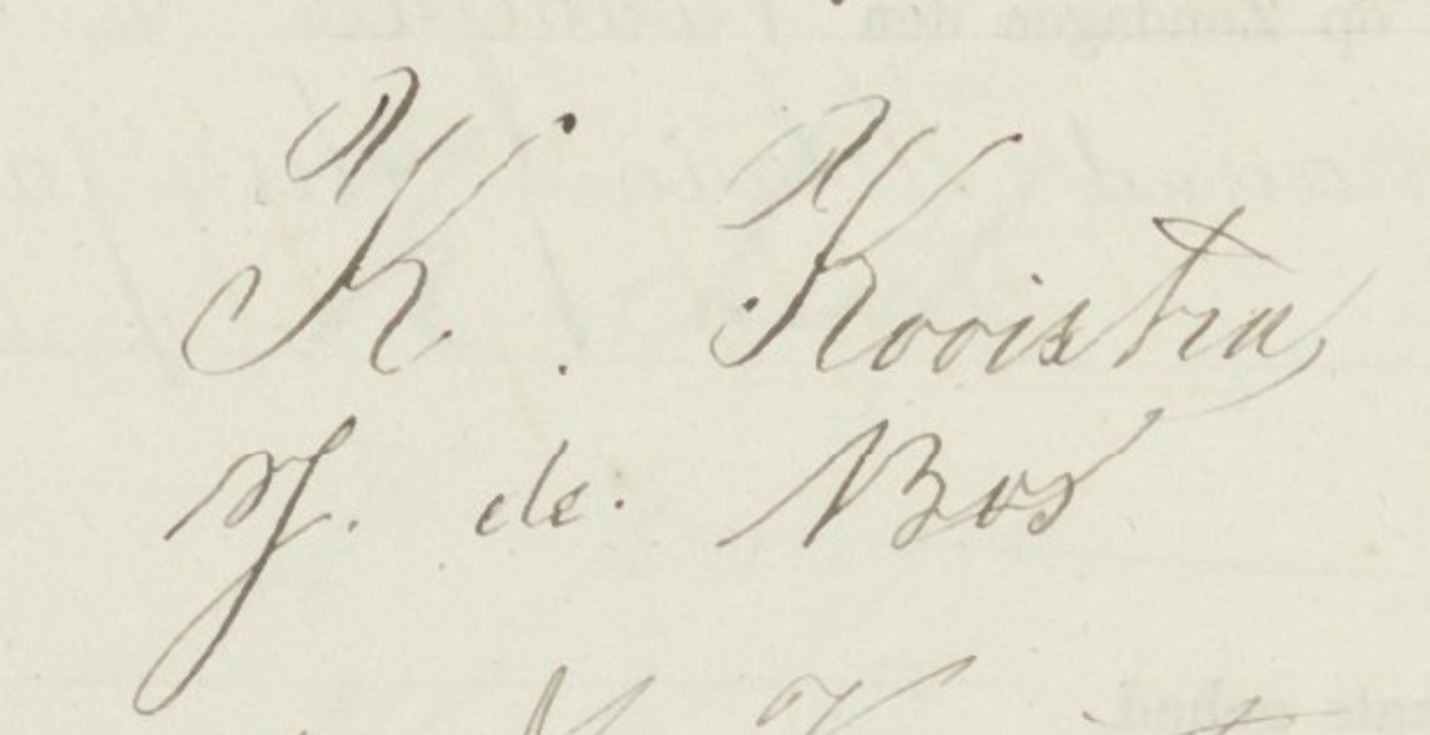 K. Kooistra
J. de Bos